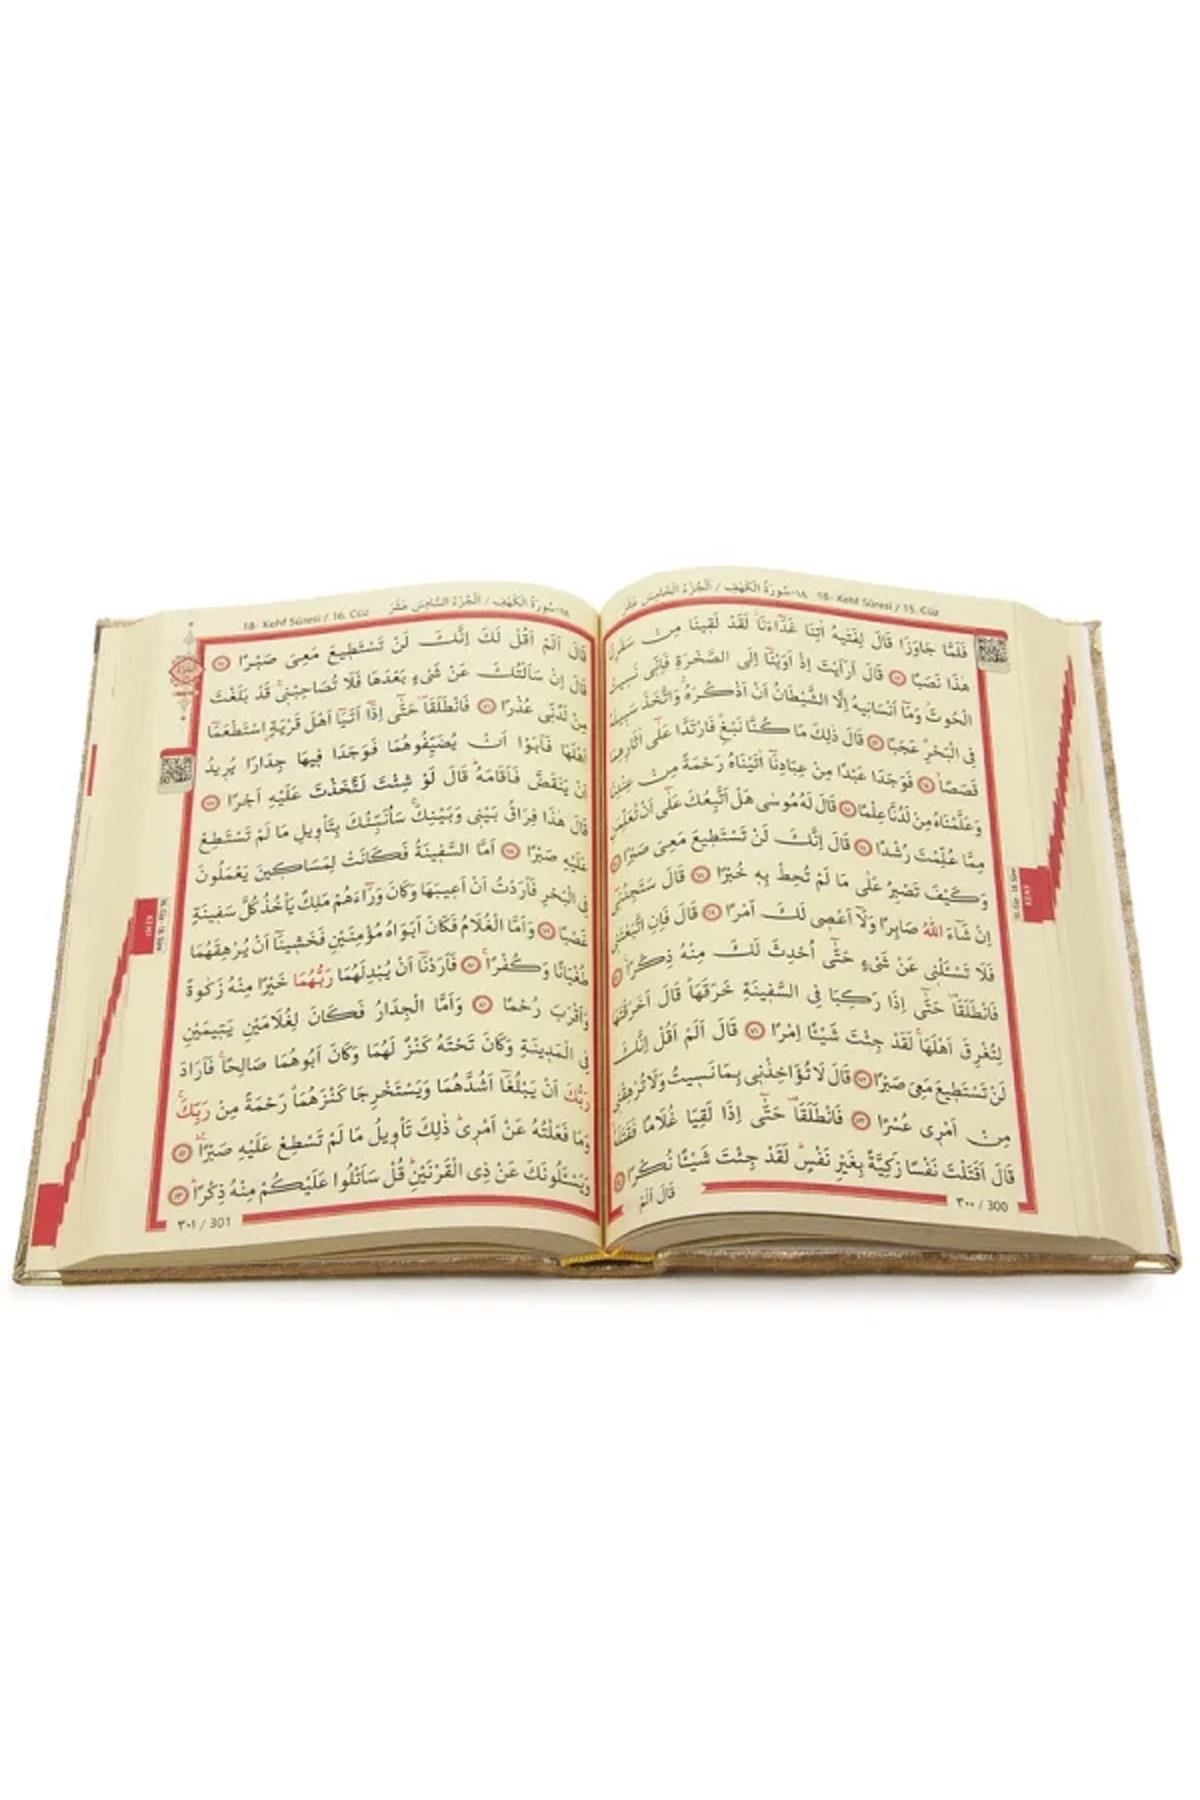 ١٨-سُورَةُ الْكَهْفِ / اَلْجُزْءُ الْخَامِسَ عَشَرَ 18- Kehf Sûresi / 15. Cüz
فَلَمَّا جَاوَزَا قَالَ لِفَتٰيهُ اٰتِنَا غَدَٓاءَنَاۘ لَقَدْ لَقٖينَا مِنْ سَفَرِنَا
هٰذَا نَصَبًا ﴿٦٢﴾ قَالَ اَرَاَيْتَ اِذْ اَوَيْنَٓا اِلَى الصَّخْرَةِ فَاِنّٖى نَسٖيتُ
الْحُوتَۘ وَمَٓا اَنْسَانٖيهُ اِلَّا الشَّيْطَانُ اَنْ اَذْكُرَهُۚ وَاتَّخَذَ سَبٖيلَهُ
فِى الْبَحْرِۗ عَجَبًا ﴿٦٣﴾ قَالَ ذٰلِكَ مَا كُنَّا نَبْغِۗ فَارْتَدَّا عَلٰٓى اٰثَارِهِمَا
قَصَصًاۙ ﴿٦٤﴾ فَوَجَدَا عَبْدًا مِنْ عِبَادِنَٓا اٰتَيْنَاهُ رَحْمَةً مِنْ عِنْدِنَا
وَعَلَّمْنَاهُ مِنْ لَدُنَّا عِلْمًا ﴿٦٥﴾ قَالَ لَهُ مُوسٰى هَلْ اَتَّبِعُكَ عَلٰٓى اَنْ تُعَلِّمَنِ
مِمَّا عُلِّمْتَ رُشْدًا ﴿٦٦﴾ قَالَ اِنَّكَ لَنْ تَسْتَطٖيعَ مَعِىَ صَبْرًا ﴿٦٧﴾
وَكَيْفَ تَصْبِرُ عَلٰى مَا لَمْ تُحِطْ بِهٖ خُبْرًا ﴿٦٨﴾ قَالَ سَتَجِدُنٖٓى
اِنْ شَٓاءَ اللّٰهُ صَابِرًا وَلَٓا اَعْصٖى لَكَ اَمْرًا ﴿٦٩﴾ قَالَ فَاِنِ اتَّبَعْتَنٖى
فَلَا تَسْـَٔلْنٖى عَنْ شَىْءٍ حَتّٰٓى اُحْدِثَ لَكَ مِنْهُ ذِكْرًا ﴿٧٠﴾
فَانْطَلَقَا۠ حَتّٰٓى اِذَا رَكِبَا فِى السَّفٖينَةِ خَرَقَهَاۜ قَالَ اَخَرَقْتَهَا
لِتُغْرِقَ اَهْلَهَاۚ لَقَدْ جِئْتَ شَيْـًٔا اِمْرًا ﴿٧١﴾ قَالَ اَلَمْ اَقُلْ اِنَّكَ
لَنْ تَسْتَطٖيعَ مَعِىَ صَبْرًا ﴿٧٢﴾ قَالَ لَا تُؤَاخِذْنٖى بِمَا نَسٖيتُ وَلَا تُرْهِقْنٖى
مِنْ اَمْرٖى عُسْرًا ﴿٧٣﴾ فَانْطَلَقَا۠ حَتّٰٓى اِذَا لَقِيَا غُلَامًا فَقَتَلَهُۙ
قَالَ اَقَتَلْتَ نَفْسًا زَكِيَّةً بِغَيْرِ نَفْسٍۜ لَقَدْ جِئْتَ شَيْـًٔا نُكْرًا ﴿٧٤﴾
قَالَ اَلَمْ
٣٠٠ / 300
KEHF
18- Kehf Sûresi / 16. Cüz ١٨-سُورَةُ الْكَهْفِ / اَلْجُزْءُ السَّادِسَ عَشَرَ
قَالَ اَلَمْ اَقُلْ لَكَ اِنَّكَ لَنْ تَسْتَطٖيعَ مَعِىَ صَبْرًا ﴿٧٥﴾
قَالَ اِنْ سَاَلْتُكَ عَنْ شَىْءٍ بَعْدَهَا فَلَا تُصَاحِبْنٖىۚ قَدْ بَلَغْتَ
مِنْ لَدُنّٖى عُذْرًا ﴿٧٦﴾ فَانْطَلَقَا۠ حَتّٰٓى اِذَٓا اَتَيَٓا اَهْلَ قَرْيَةٍۨ اسْتَطْعَمَٓا
اَهْلَهَا فَاَبَوْا اَنْ يُضَيِّفُوهُمَا فَوَجَدَا فٖيهَا جِدَارًا يُرٖيدُ
اَنْ يَنْقَضَّ فَاَقَامَهُۜ قَالَ لَوْ شِئْتَ لَتَّخَذْتَ عَلَيْهِ اَجْرًا ﴿٧٧﴾
قَالَ هٰذَا فِرَاقُ بَيْنٖى وَبَيْنِكَۚ سَاُنَبِّئُكَ بِتَأْوٖيلِ مَا لَمْ تَسْتَطِعْ
عَلَيْهِ صَبْرًا ﴿٧٨﴾ اَمَّا السَّفٖينَةُ فَكَانَتْ لِمَسَاكٖينَ يَعْمَلُونَ
فِى الْبَحْرِ فَاَرَدْتُ اَنْ اَعٖيبَهَا وَكَانَ وَرَٓاءَهُمْ مَلِكٌ يَأْخُذُ كُلَّ سَفٖينَةٍ
غَصْبًا ﴿٧٩﴾ وَاَمَّا الْغُلَامُ فَكَانَ اَبَوَاهُ مُؤْمِنَيْنِ فَخَشٖينَٓا اَنْ يُرْهِقَهُمَا
طُغْيَانًا وَكُفْرًاۚ ﴿٨٠﴾ فَاَرَدْنَٓا اَنْ يُبْدِلَهُمَا رَبُّهُمَا خَيْرًا مِنْهُ زَكٰوةً
وَاَقْرَبَ رُحْمًا ﴿٨١﴾ وَاَمَّا الْجِدَارُ فَكَانَ لِغُلَامَيْنِ يَتٖيمَيْنِ
فِى الْمَدٖينَةِ وَكَانَ تَحْتَهُ كَنْزٌ لَهُمَا وَكَانَ اَبُوهُمَا صَالِحًاۚ فَاَرَادَ
رَبُّكَ اَنْ يَبْلُغَٓا اَشُدَّهُمَا وَيَسْتَخْرِجَا كَنْزَهُمَا رَحْمَةً مِنْ رَبِّكَۚ
وَمَا فَعَلْتُهُ عَنْ اَمْرٖىۜ ذٰلِكَ تَأْوٖيلُ مَا لَمْ تَسْطِعْ عَلَيْهِ صَبْرًاۜ ﴿٨٢﴾
وَيَسْـَٔلُونَكَ عَنْ ذِى الْقَرْنَيْنِۜ قُلْ سَاَتْلُوا عَلَيْكُمْ مِنْهُ ذِكْرًاۜ ﴿٨٣﴾
٣٠١ / 301
KEHF